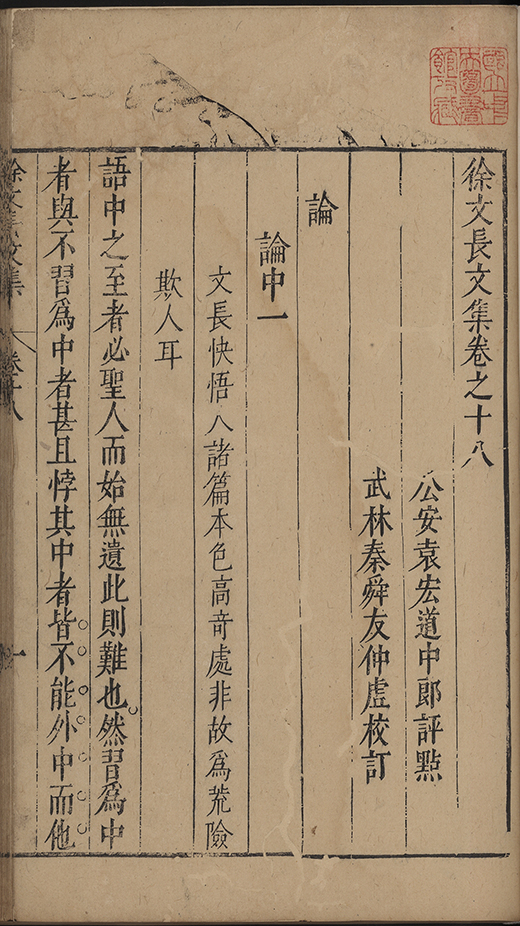 徐文長文集卷之十八
公安袁宏道中郎評點
武林秦舜友仲虛校訂
論
論中一
文長快悟人諸篇本色高竒處非故爲荒險
欺人耳
語中之至者必聖人而始無遺此則難也然習爲中
者與不習爲中者甚且悖其中者皆不能外中而他
徐文長文集
卷十八
一